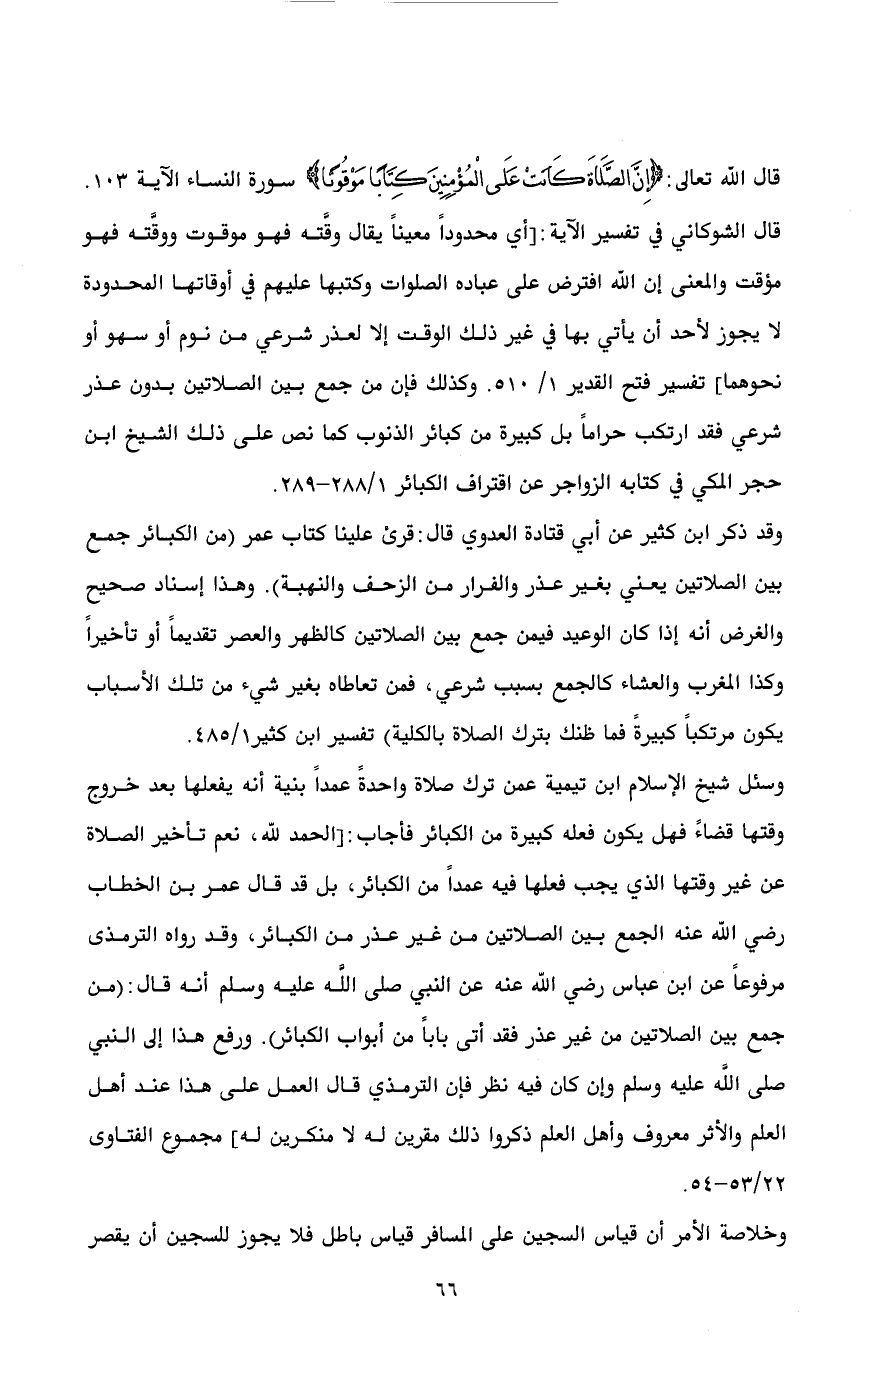 قال الله تعالى: ﴿إِنَّ الصَّلَاةَ كَانَتْ عَلَى الْمُؤْمِنِينَ كِتَابًا مَوْقُوتًا﴾ سورة النساء الآية ١٠٣.
قال الشوكاني في تفسير الآية:[أي محدوداً معيناً يقال وقَّته فهو موقوت ووقَّته فهو
مؤقت والمعنى إن الله افترض على عباده الصلوات وكتبها عليهم في أوقاتها المحدودة
لا يجوز لأحد أن يأتي بها في غير ذلك الوقت إلا لعذر شرعي من نوم أو سهو أو
نحوهما] تفسير فتح القدير ١/ ٥١٠. وكذلك فإن من جمع بين الصلاتين بدون عذر
شرعي فقد ارتكب حراماً بل كبيرة من كبائر الذنوب كما نص على ذلك الشيخ ابن
حجر المكي في كتابه الزواجر عن اقتراف الكبائر ٢٨٨/١–٢٨٩.
وقد ذكر ابن كثير عن أبي قتادة العدوي قال:قرئ علينا كتاب عمر (من الكبائر جمع
بين الصلاتين يعني بغير عذر والفرار من الزحف والنهبة). وهذا إسناد صحيح
والغرض أنه إذا كان الوعيد فيمن جمع بين الصلاتين كالظهر والعصر تقديماً أو تأخيراً
وكذا المغرب والعشاء كالجمع بسبب شرعي، فمن تعاطاه بغير شيء من تلك الأسباب
يكون مرتكباً كبيرةً فما ظنك بترك الصلاة بالكلية) تفسير ابن كثير٤٨٥/١.
وسئل شيخ الإسلام ابن تيمية عمن ترك صلاة واحدةً عمداً بنية أنه يفعلها بعد خروج
وقتها قضاءً فهل يكون فعله كبيرة من الكبائر فأجاب:[الحمد لله، نعم تأخير الصلاة
عن غير وقتها الذي يجب فعلها فيه عمداً من الكبائر، بل قد قال عمر بن الخطاب
رضي الله عنه الجمع بين الصلاتين من غير عذر من الكبائر، وقد رواه الترمذى
مرفوعاً عن ابن عباس رضي الله عنه عن النبي صلى اللَّه عليه وسلم أنه قال:(من
جمع بين الصلاتين من غير عذر فقد أتى باباً من أبواب الكبائر). ورفع هذا إلى النبي
صلى اللَّه عليه وسلم وإن كان فيه نظر فإن الترمذي قال العمل على هذا عند أهل
العلم والأثر معروف وأهل العلم ذكروا ذلك مقرين له لا منكرين له] مجموع الفتاوى
٥٣/٢٢–٥٤.
وخلاصة الأمر أن قياس السجين على المسافر قياس باطل فلا يجوز للسجين أن يقصر
٦٦